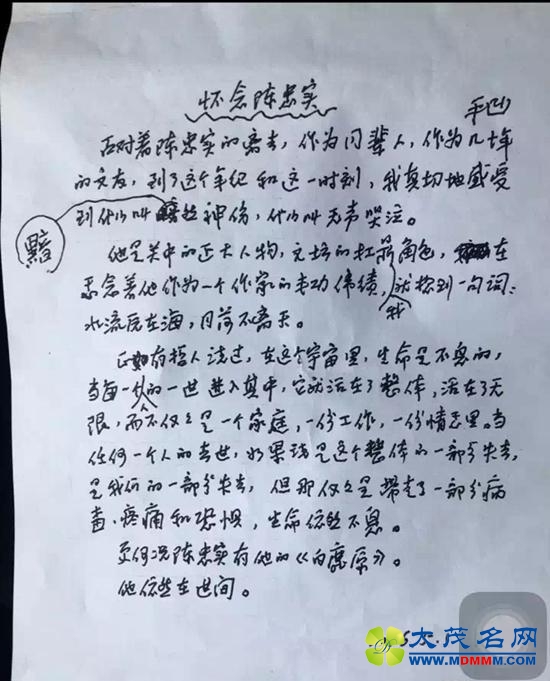 怀念陈忠实
平凹
面对着陈忠实的离去，作为同辈人，作为几十年
的文友，到了这个年纪和这一时刻，我真切地感受
到什么叫黯然神伤，什么叫无声哭泣。
他是关中的正大人物，文坛的扛鼎角色，在
思念着他作为一个作家的丰功伟绩，我想到一句词：
水流原在海，月落不离天。
正如有哲人说过，在这个宇宙里，生命是不息的，
当每一个人的一世进入其中，它就活在了整体，活在了无
限，而不仅仅是一个家庭，一份工作，一份情志里。当
任何一个人的去世，如果说是这个整体的一部分失去，
是我们的一部分失去，但那仅仅是带走了一部分病
毒、疼痛和恐惧，生命依然不息。
更何况陈忠实有他的《白鹿原》。
他依然在世间。
大茂名网
WWW.MDMMM.COM